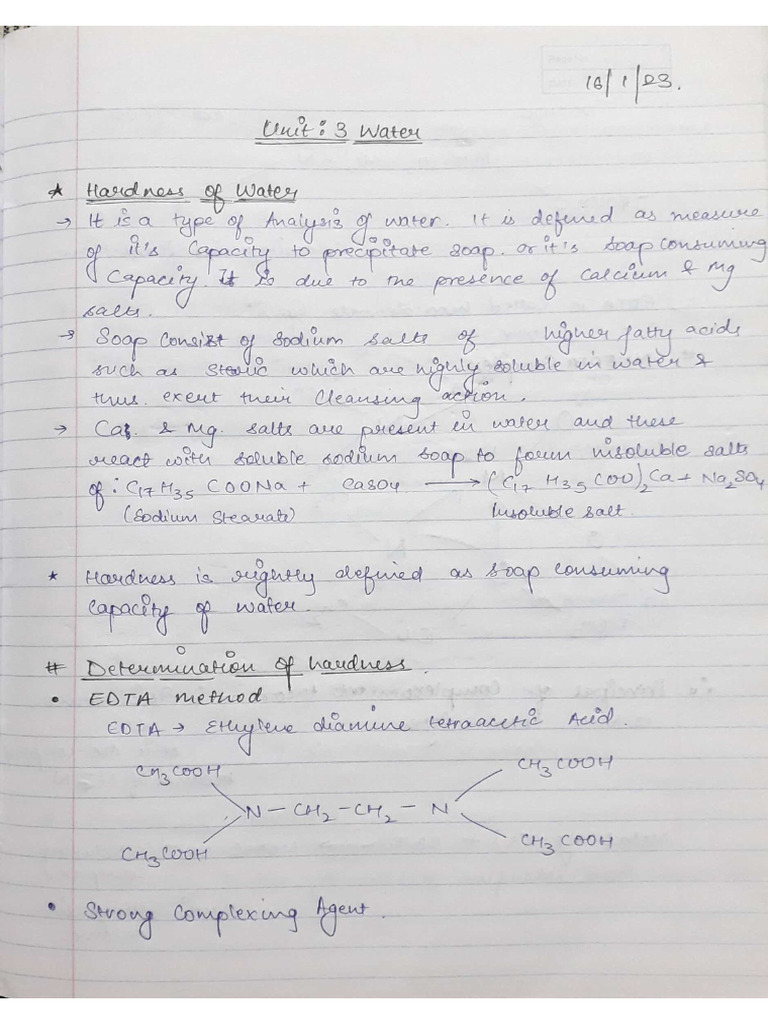 16/1/23.
Unit: 3 Water
* Hardness of Water
→ It is a type of Analysis of water. It is defined as measure
of it's Capacity to precipitate soap. or it's soap consuming
Capacity. It is due to the presence of Calcium & Mg
salts.
→ Soap consist of sodium salts of higher fatty acids
such as steric which are highly soluble in water &
thus. exert their Cleansing action.
→ Ca. & Mg. salts are present in water and these
react with soluble sodium soap to form insoluble salts
of : C₁₇H₃₅COONa + CaSO₄ ⟶ (C₁₇H₃₅COO)₂Ca + Na₂SO₄
(Sodium Stearate) Insoluble salt.
* Hardness is rightly defined as soap consuming
capacity of water.
# Determination of hardness.
• EDTA method
EDTA → Ethylene diamine tetraacetic Acid.
CH₃COOH CH₃COOH
N — CH₂ — CH₂ — N
CH₃COOH CH₃COOH
• Strong Complexing Agent.